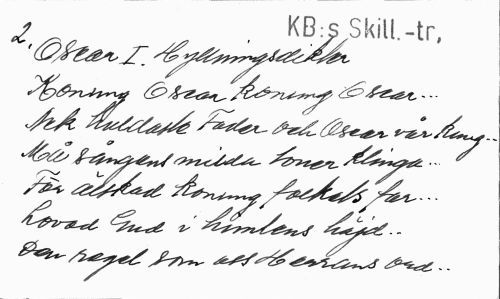 KB:s Skill.-tr.
2. Oscar I. Hyllningsdikter
Konung Oscar konung Oscar...
Ack huldaste Fader och Oscar vår kung...
Må sångens milda toner klinga...
För älskad konung folkets far...
Lovad Gud i himlens höjd..
Den regel som oss Herrans ord..